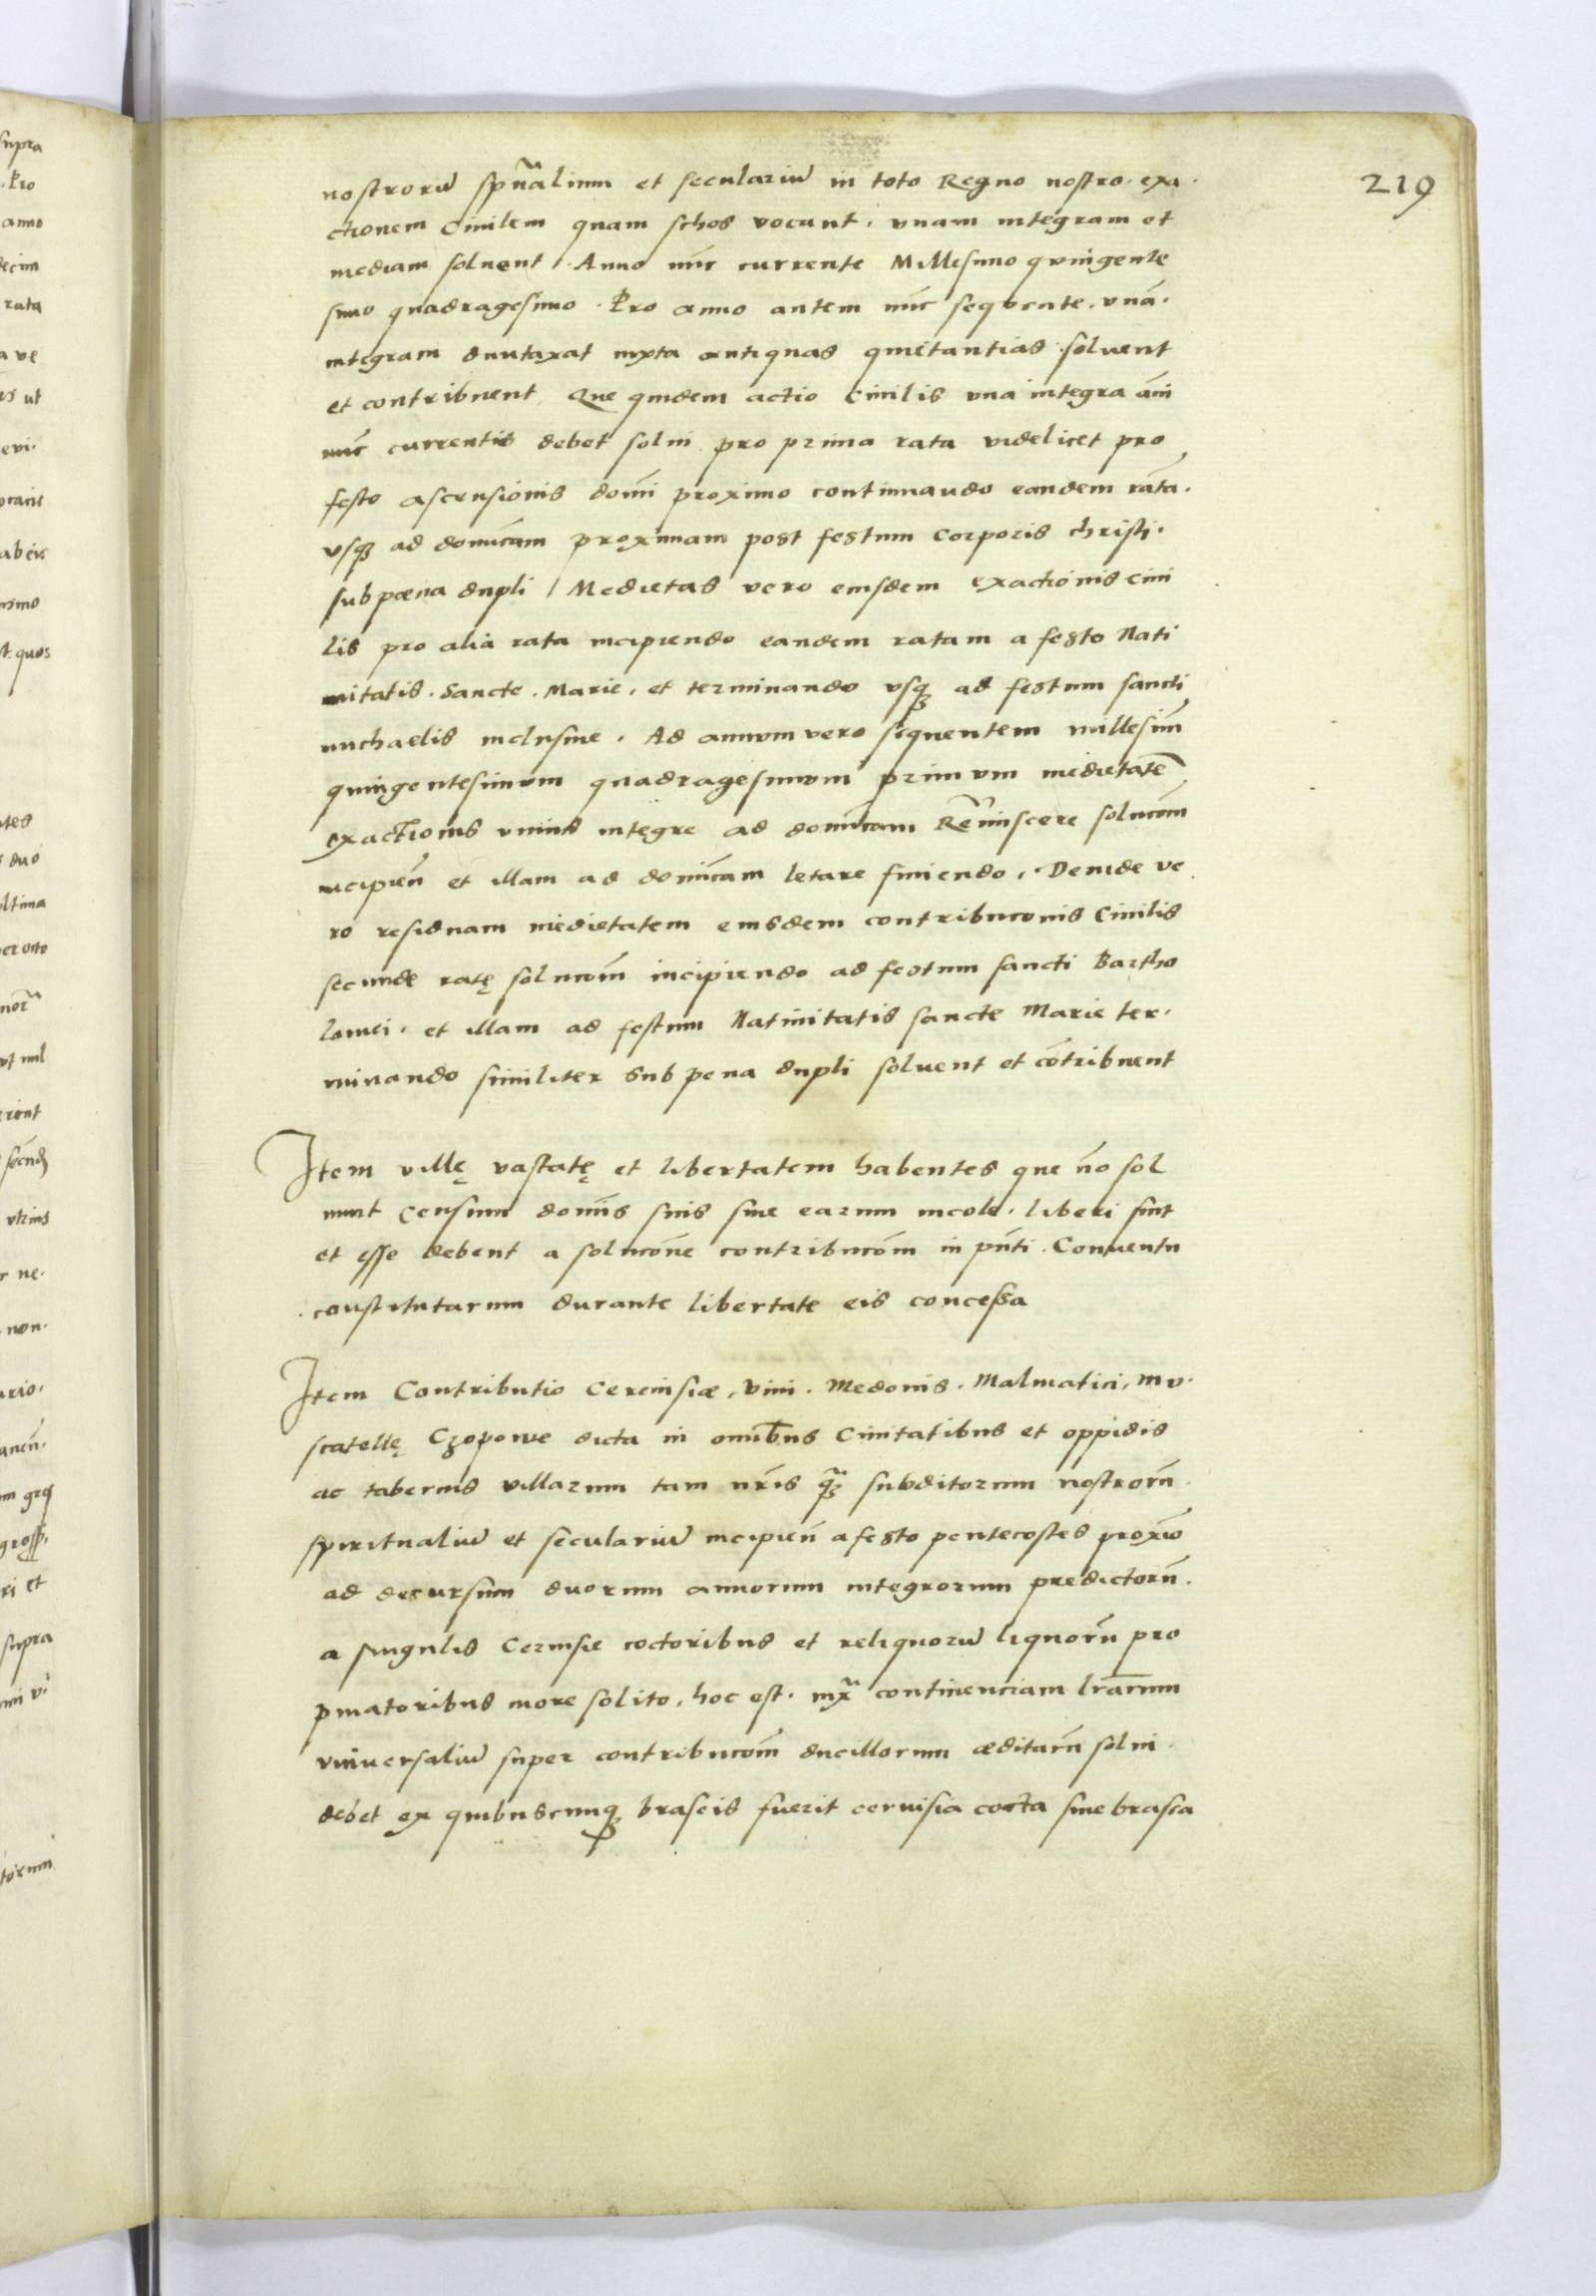 219
nostrorū spūalium et seculariū in toto Regno nostro. exa.
ctionem Ciuilem quam schos vocant. vnam integram et
mediam soluent / Anno nūc currente Millesimo quingente
simo quadragesimo. Pro anno autem nūc sequente. vnā.
integram duntaxat iuxta antiquas quietantias soluent
et contribuent, Que quidem actio Ciuilis vna integra añi
nūc currentis debet solui pro prima rata videlicet pro
festo ascensionis domī proximo continuando eandem ratā.
vsq̢ ad domīcam proximam post festum Corporis christi.
sub pœna dupli / Medietas vero eiusdem exactionis ciui
lis pro alia rata incipiendo eandem ratam a festo Nati
uitatis. Sancte. Marie, et terminando vsq̢ ad festum sancti
michaelis inclusiue. Ad annum vero sequentem millesim̄
quingentesimum quadragesimum primum medietatē
exactionis vnius integre ad domīcam Remīniscere solucōm
incipień et illam ad domīcam letare finiendo. Deinde ve
ro residuam medietatem eiusdem contribucōnis Ciuilis
secunde ratę solucōm incipiendo ad festum sancti Bartho
lomei. et illam ad festum Natiuitatis sancte Marie ter.
minando similiter sub pena dupli soluent et cōtribuent
Item villę vastatę et libertatem habentes que nō sol
uunt Censum domīs suis siue earum incole. liberi sint
et esse debent a solucōne contribucōm in pn̄ti. Conuentu
constitutarum durante libertate eis concessa
Item Contributio Cereuisiæ, vini. Medonis. Malmatici, mu.
scatellę Czopowe dicta in omnībus Ciuitatibus et oppidis
ac tabernis villarum tam nr̄is q̄ȝ subditorum nostrorū.
spiritualiū et seculariū incipień a festo pentecostes proxīo
ad decursum duorum annorum integrorum predictorū.
a singulis Ceruisie coctoribus et reliquorū liquorū pro
pinatoribus more solito, hoc est. iux̄ continenciam lr̄arum
vniuersaliū super contribucōm ducillorum æditarū solui.
debet ex quibuscunq̢ braseis fuerit ceruisia cocta siue brasea